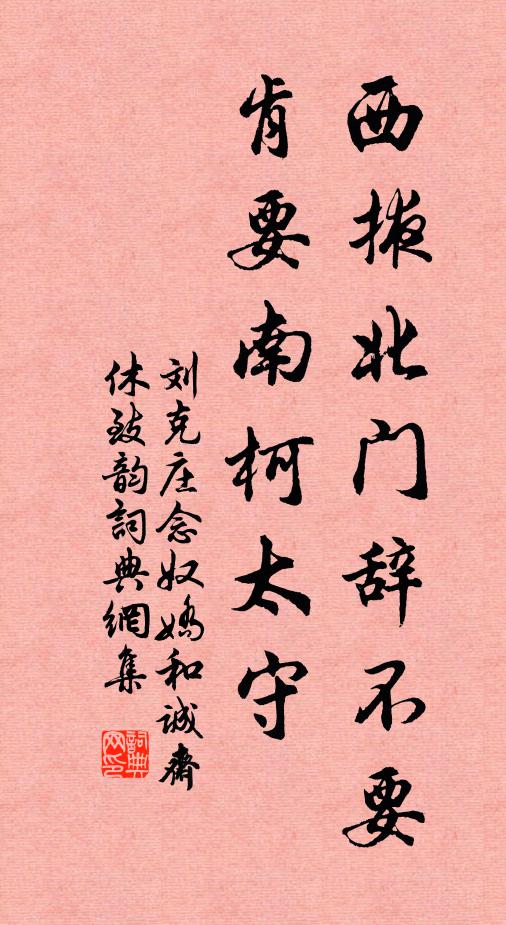 西掖北门辞不要
肯要南柯太守
刘克庄念奴娇和诚斋
休致韵词典網集
詞典网印